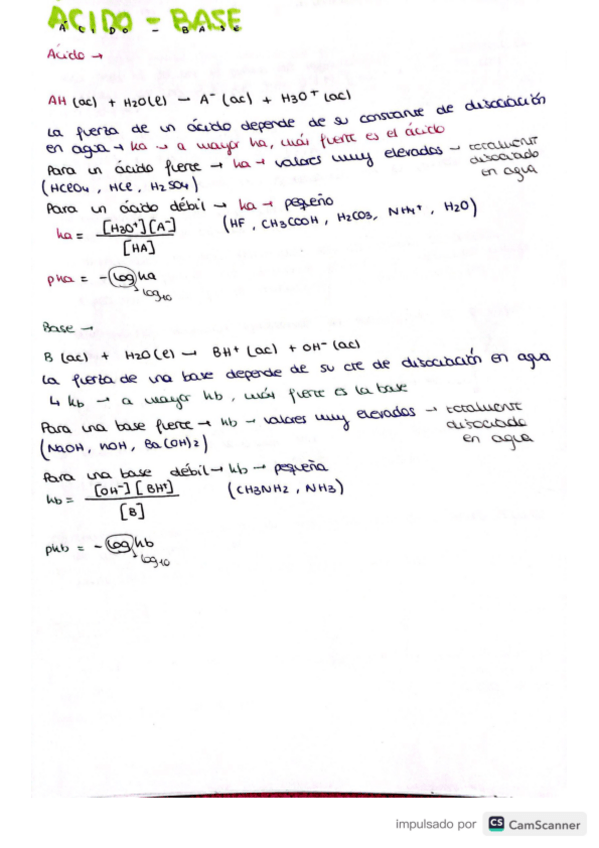 ACIDO - BASE
ÁCIDO - BASE
Ácido →
AH (ac) + H2O(l) → A⁻ (ac) + H3O⁺ (ac)
La fuerza de un ácido depende de su constante de disociación
en agua → ka → a mayor ka, más fuerte es el ácido
Para un ácido fuerte → ka → valores muy elevados → totalmente
disociado
en agua
(HClO4, HCl, H2SO4)
Para un ácido débil → ka → pequeño
(HF, CH3COOH, H2CO3, NH4⁺, H2O)
ka = [H3O⁺][A⁻]
[HA]
pka = -log ka
→ log10
Base →
B (ac) + H2O(l) → BH⁺ (ac) + OH⁻ (ac)
La fuerza de una base depende de su cte de disociación en agua
↳ kb → a mayor kb, más fuerte es la base
Para una base fuerte → kb → valores muy elevados → totalmente
disociado
en agua
(NaOH, KOH, Ba(OH)2)
Para una base débil → kb → pequeña
(CH3NH2, NH3)
kb = [OH⁻][BH⁺]
[B]
pkb = -log kb
→ log10
impulsado por CS CamScanner